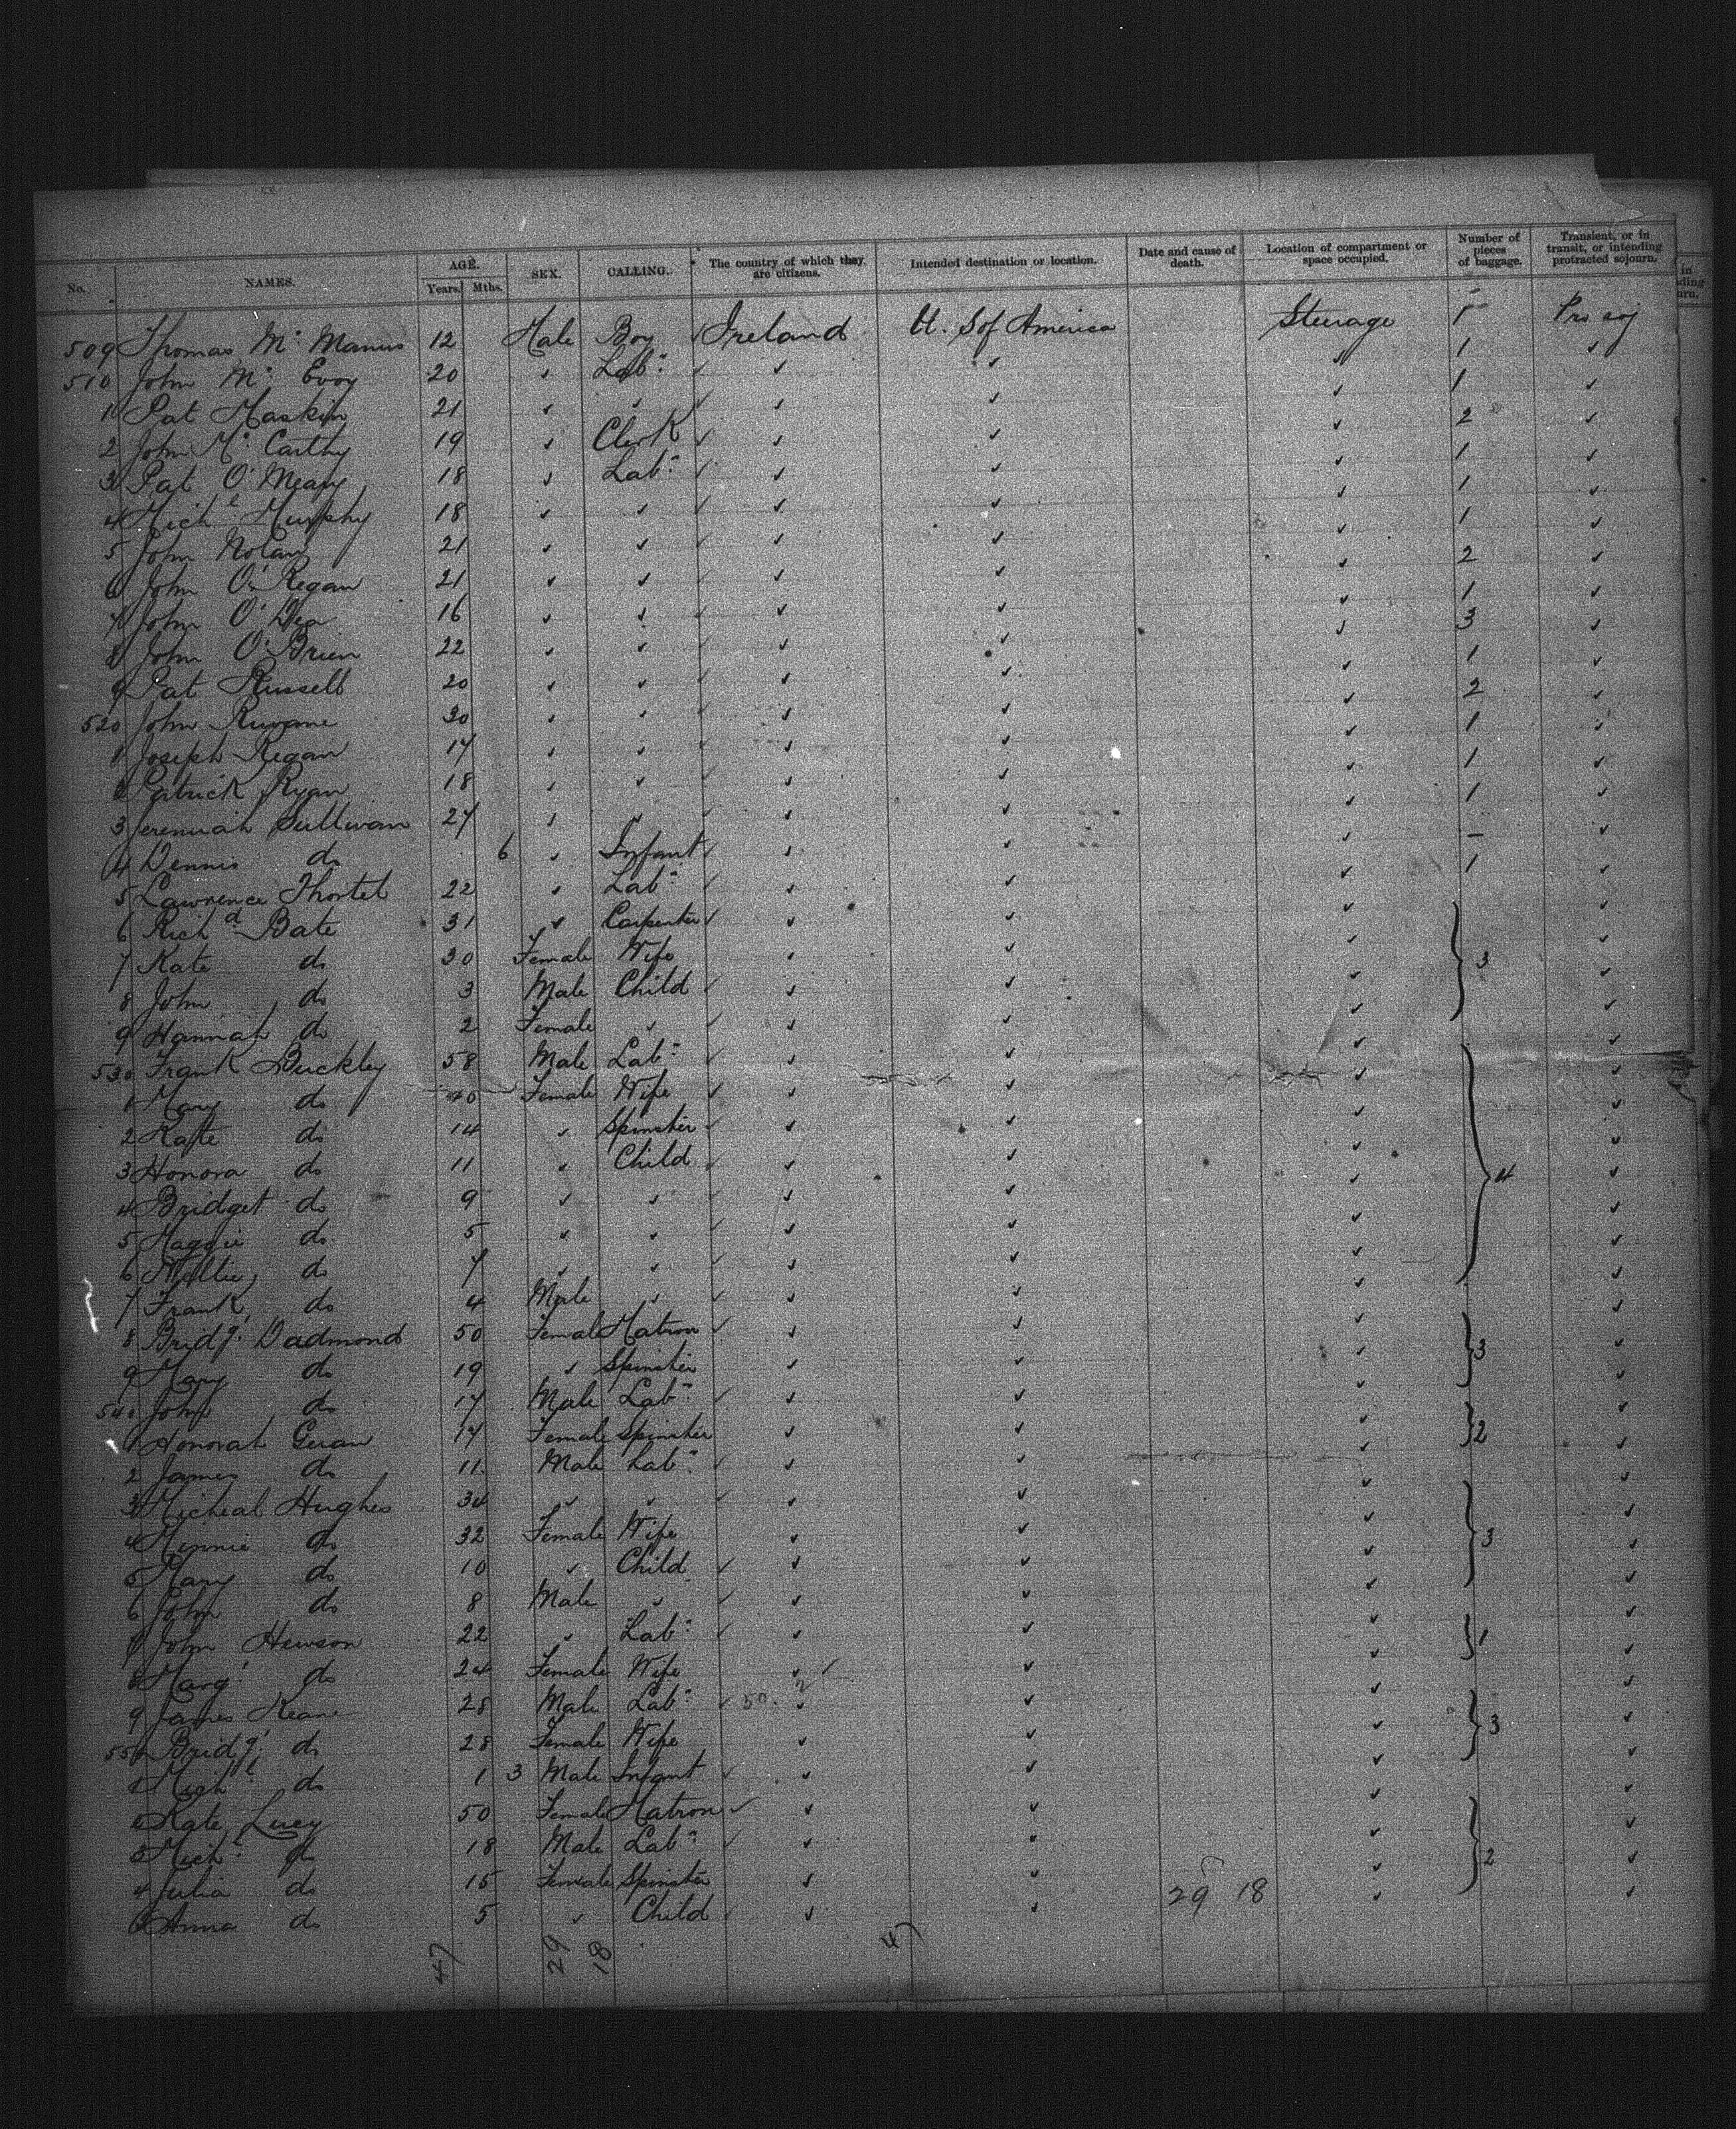 No. NAMES. AGE. Years. Mths. SEX. CALLING. The country of which they are citizens. Intended destination or location. Date and cause of death. Location of compartment or space occupied. Number of pieces of baggage. Transient, or in transit, or intending protracted sojourn.
509 Thomas Mc Manus 12 Male Boy ✓ Ireland U. S of America Steerage 1 Pro soj
510 John Mc Evoy 20 ✓ Labr ✓ ✓ ✓ ✓ 1 ✓
1 Pat Haskin 21 ✓ ✓ ✓ ✓ ✓ ✓ 1 ✓
2 John Mc Carthy 19 ✓ Clerk ✓ ✓ ✓ ✓ 2 ✓
3 Pat O'Meary 18 ✓ Labr ✓ ✓ ✓ ✓ 1 ✓
4 Michl Murphy 18 ✓ ✓ ✓ ✓ ✓ ✓ 1 ✓
5 John Nolan 21 ✓ ✓ ✓ ✓ ✓ ✓ 1 ✓
6 John O'Regan 21 ✓ ✓ ✓ ✓ ✓ ✓ 2 ✓
7 John O'Dea 16 ✓ ✓ ✓ ✓ ✓ ✓ 1 ✓
8 John O'Brien 22 ✓ ✓ ✓ ✓ ✓ ✓ 3 ✓
9 Pat Russell 20 ✓ ✓ ✓ ✓ ✓ ✓ 1 ✓
520 John Ruvane 30 ✓ ✓ ✓ ✓ ✓ ✓ 2 ✓
1 Joseph Regan 17 ✓ ✓ ✓ ✓ ✓ ✓ 1 ✓
2 Patrick Ryan 18 ✓ ✓ ✓ ✓ ✓ ✓ 1 ✓
3 Jeremiah Sullivan 27 ✓ ✓ ✓ ✓ ✓ ✓ 1 ✓
4 Dennis do 6 ✓ Infant ✓ ✓ ✓ ✓ — ✓
5 Lawrence Thortel 22 ✓ Labr ✓ ✓ ✓ ✓ 1 ✓
6 Richd Bate 31 ✓ Carpenter ✓ ✓ ✓ ✓ ✓
7 Kate do 30 Female Wife ✓ ✓ ✓ 3 ✓
8 John do 3 Male Child ✓ ✓ ✓ ✓ ✓
9 Hannah do 2 Female ✓ ✓ ✓ ✓ ✓ ✓
530 Frank Buckley 58 Male Labr ✓ ✓ ✓ ✓ ✓
1 Mary do 40 Female Wife ✓ ✓ ✓ ✓ ✓
2 Kate do 14 ✓ Spinster ✓ ✓ ✓ ✓ ✓
3 Honora do 11 ✓ Child ✓ ✓ ✓ ✓ ✓
4 Bridget do 9 ✓ ✓ ✓ ✓ ✓ ✓ 4 ✓
5 Maggie do 5 ✓ ✓ ✓ ✓ ✓ ✓ ✓
6 Nellie do 7 ✓ ✓ ✓ ✓ ✓ ✓ ✓
7 Frank do 4 Male ✓ ✓ ✓ ✓ ✓ ✓
8 Bridgt Dadmond 50 Female Matron ✓ ✓ ✓ ✓ ✓
9 Mary do 19 ✓ Spinster ✓ ✓ ✓ 3 ✓
540 John do 17 Male Labr ✓ ✓ ✓ ✓ ✓
1 Honorah Geran 17 Female Spinster ✓ ✓ ✓ 2 ✓
2 James do 11 Male Labr ✓ ✓ ✓ ✓ ✓
3 Micheal Hughes 34 ✓ ✓ ✓ ✓ ✓ ✓ ✓
4 Minnie do 32 Female Wife ✓ ✓ ✓ 3 ✓
5 Mary do 10 ✓ Child ✓ ✓ ✓ ✓ ✓
6 John do 8 Male ✓ ✓ ✓ ✓ ✓ ✓
7 John Hewson 22 ✓ Labr ✓ ✓ ✓ ✓ 1 ✓
8 Margt do 24 Female Wife ✓ ✓ ✓ ✓ ✓
9 James Keane 28 Male Labr ✓ 50. 2 ✓ ✓ ✓ ✓
550 Bridgt do 28 Female Wife ✓ ✓ ✓ 3 ✓
1 Michl do 1 3 Male Infant ✓ ✓ ✓ ✓ ✓
2 Kate Lucy 50 Female Matron ✓ ✓ ✓ ✓ ✓
3 Michl do 18 Male Labr ✓ ✓ ✓ ✓ ✓
4 Julia do 15 Female Spinster ✓ ✓ 29 18 ✓ 2 ✓
5 Anna do 5 ✓ Child ✓ ✓ ✓ ✓ ✓
47 29 18 47